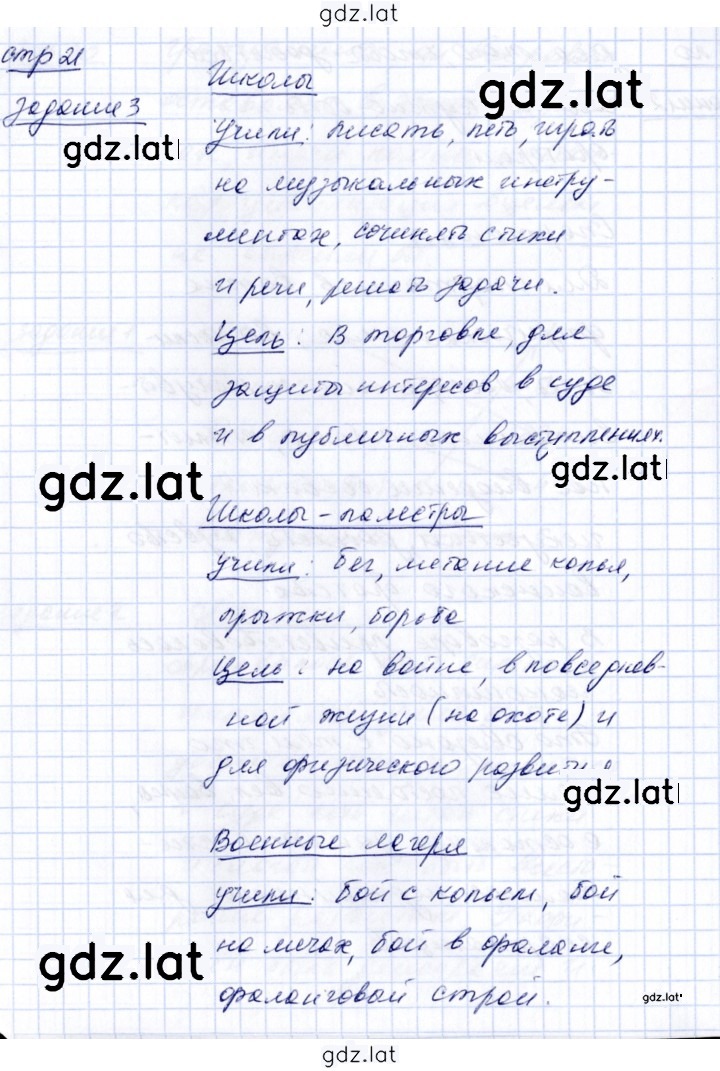 gdz.lat
стр 21
Школы
gdz.lat
Задание 3
Учили: писать, петь, играть
gdz.lat
на музыкальных инстру-
ментах, сочинять стихи
и речи, решать задачи.
Цель: В торговле, для
защиты интересов в суде
и в публичных выступлениях.
gdz.lat
gdz.lat
Школы-палестры
учили: бег, метание копья,
прыжки, борьба
Цель: на войне, в повседнев-
ной жизни (на охоте) и
для физического развития
gdz.lat
Военные лагеря
учили: бой с копьем, бой
на мечах, бой в фаланге,
gdz.lat
фаланговый строй.
gdz.lat
gdz.lat